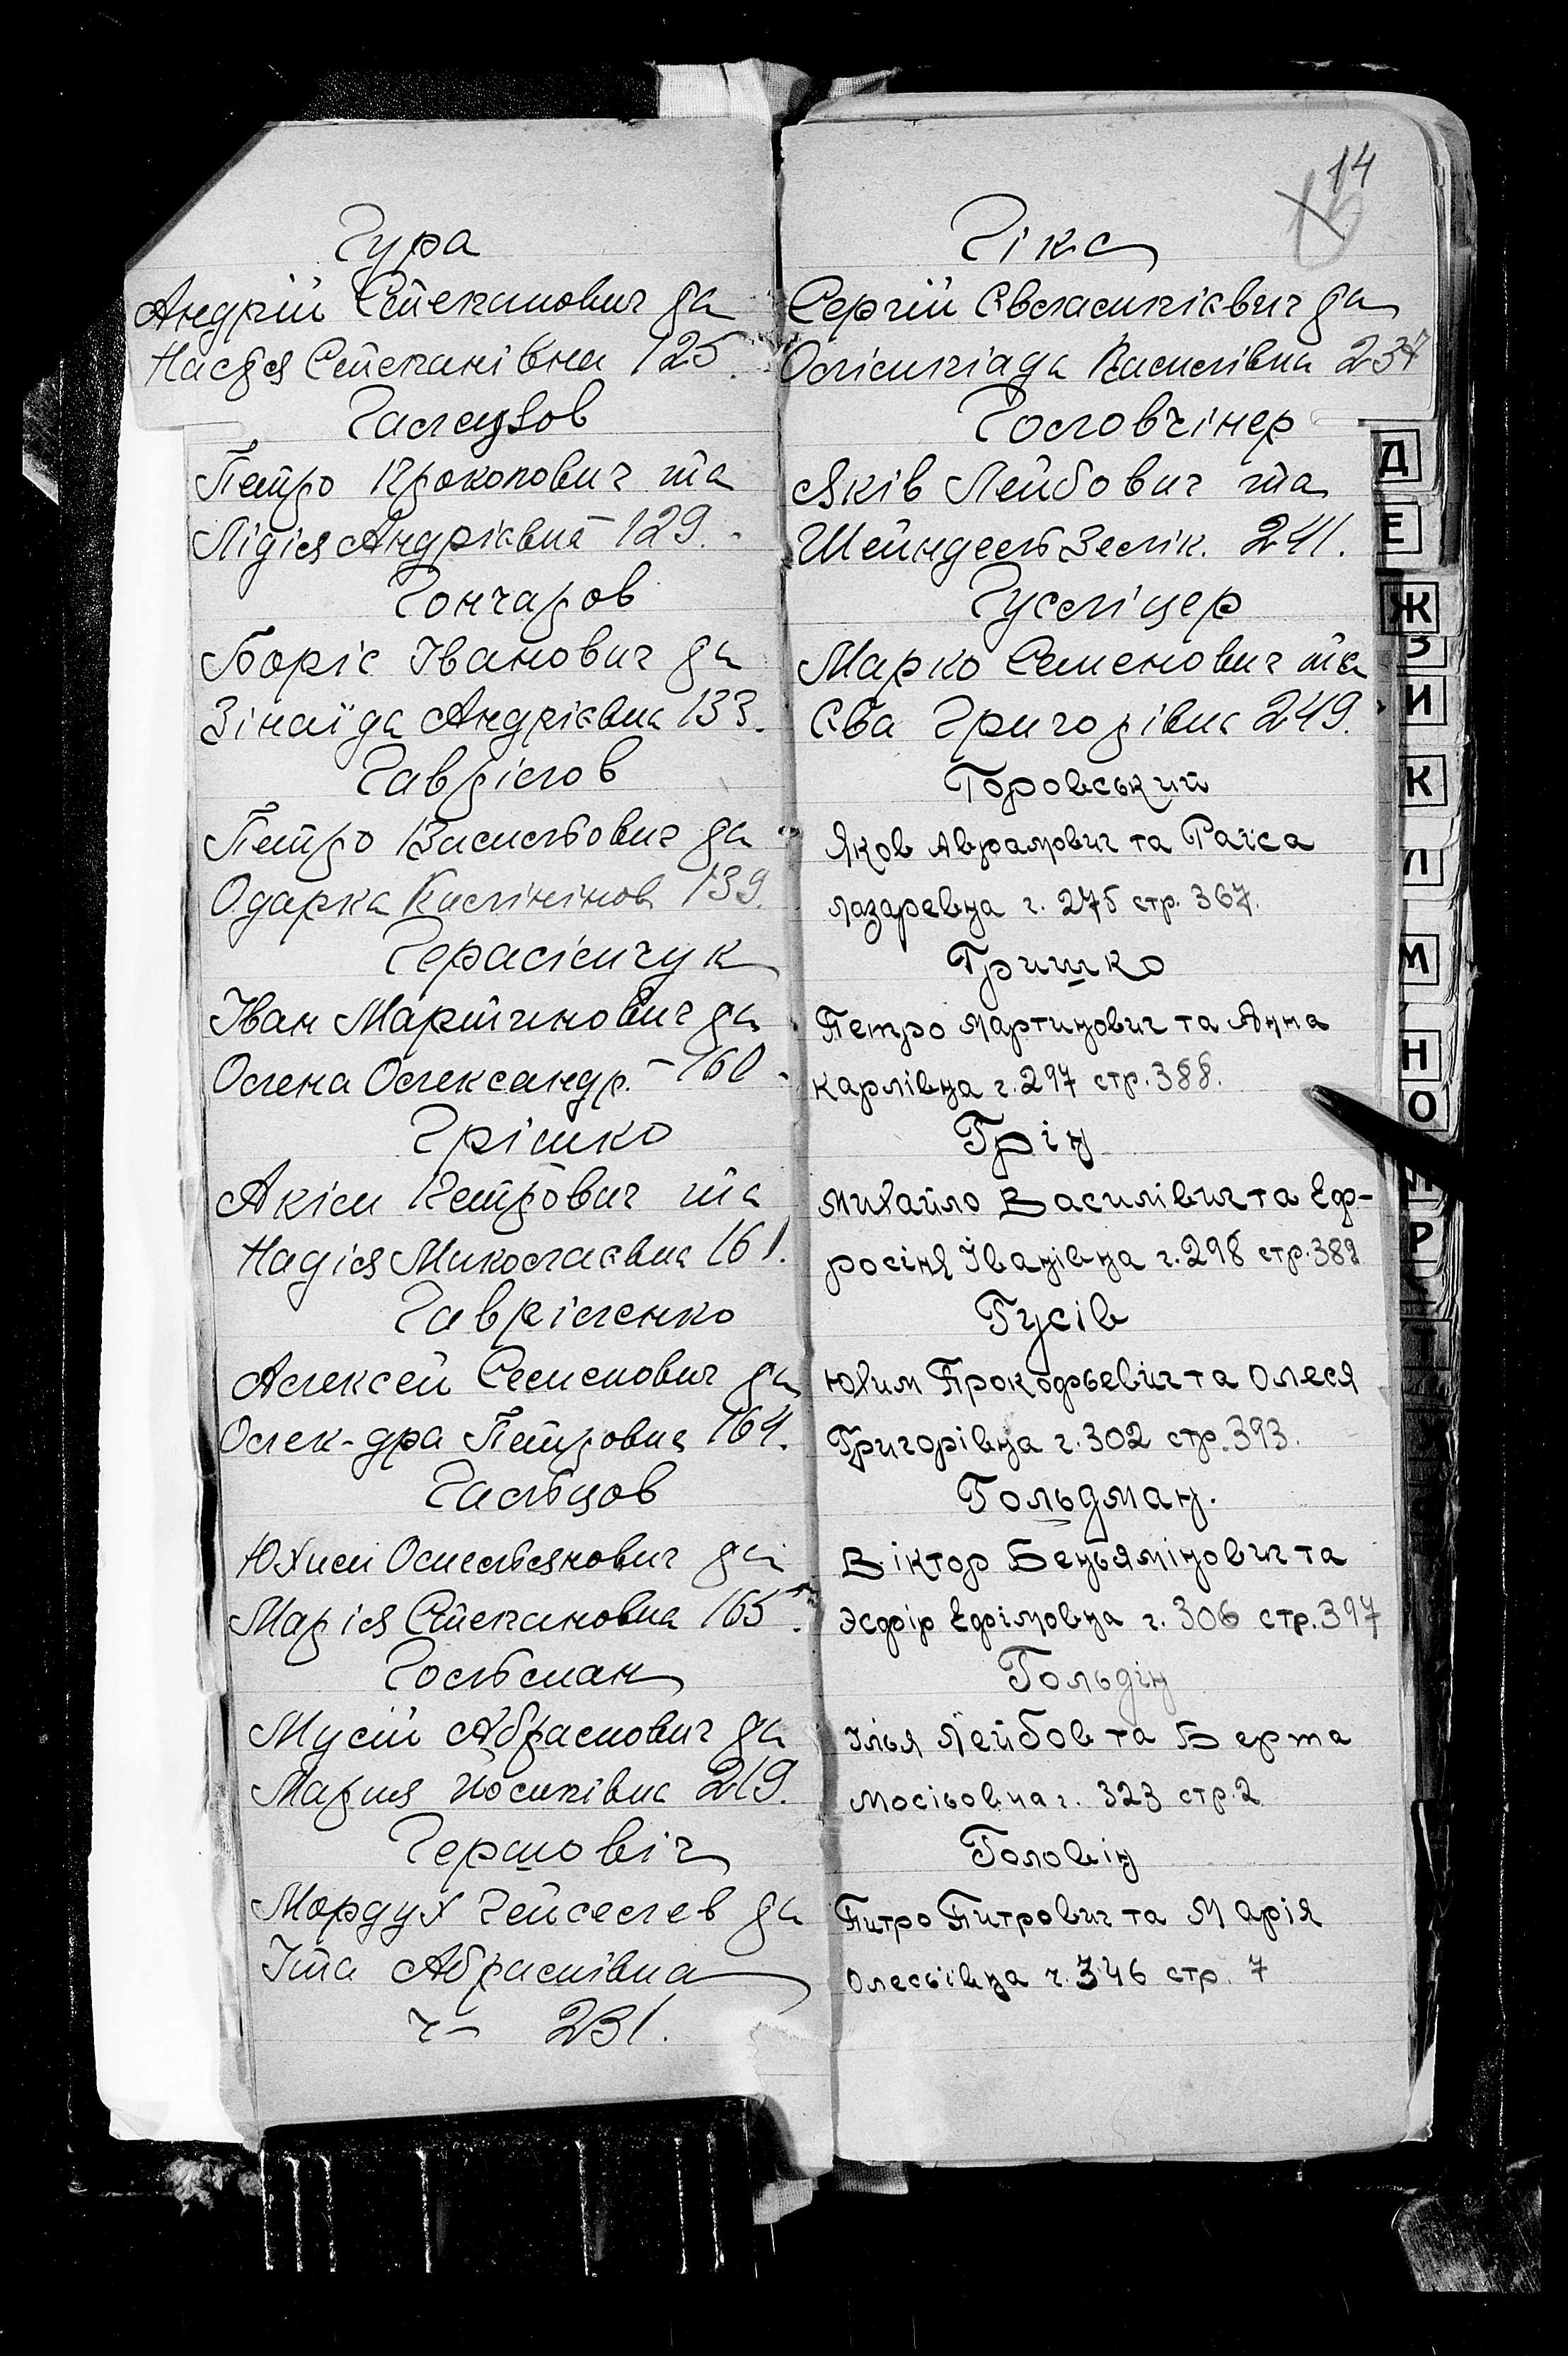 Гура
Андрій Степанович да
Настя Степанівна 125.
Галецов
Петро Прокопович та
Лідія Андрієвна 129.
Гончаров
Боріс Іванович да
Зінаїда Андрієвна 133.
Гаврілов
Петро Васильович да
Одарка 139.
Герасімчук
Іван Мартинович да
Олена Олександр. - 160.
Грішко
Акім Петрович та
Надія Миколаєвна 161.
Гавріленко
Алексей Семенович да
Олек-дра Петровна 164.
Гальцов
Юхим Омельянович да
Марія Степановна 165.
Гольман
Мусій Абрамович да
Мария Йосипівна 219.
Гершовіч
Мордух Гейселев да
Іта Абрамівна
ч- 231.
14
Гіка
Сергій Євлампієвич да
Олімпіада Василівна 237
Головчінер
Яків Лейбович та
Шейндель Зелік. 241.
Гуслицер
Марко Семенович та
Єва Григорівна 249.
Горовський
Яков Аврамович та Раїса
Лазаревна ч. 275 стр. 367.
Гришко
Петро Мартинович та Анна
Карлівна ч. 297 стр. 388.
Грін
Михайло Василівич та Еф-
росіня Іванівна ч. 298 стр. 389
Гусів
Юхим Прокофьевіч та Олеся
Григорівна ч. 302 стр. 393.
Гольдман.
Віктор Беньямінович та
Эсфір Ефімовна ч. 306 стр. 397
Гольдін
Ілья Лейбов та Берта
Мосіовна ч. 323 стр. 2
Головін
Питро Питрович та Марія
Олесьівна ч. 346 стр. 7
Д
Е
Ж
З
И
К
Л
М
Н
О
Р
Т